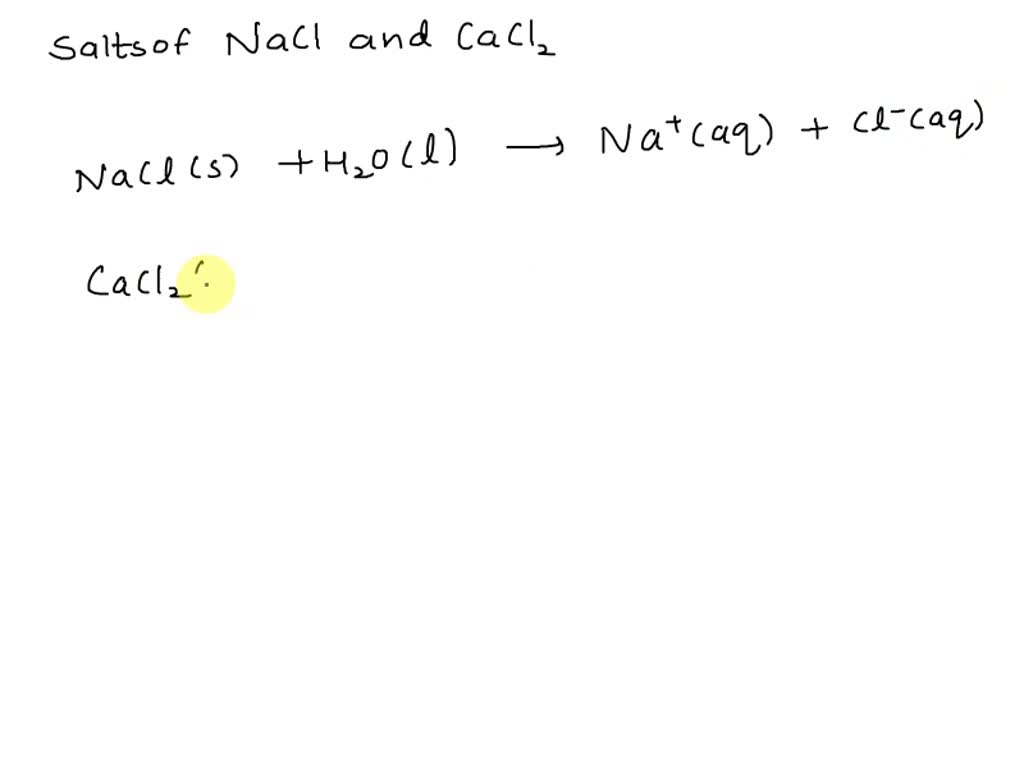 Saltsof NaCl and CaCl₂
NaCl(s) + H₂O(l) → Na⁺(aq) + Cl⁻(aq)
CaCl₂(